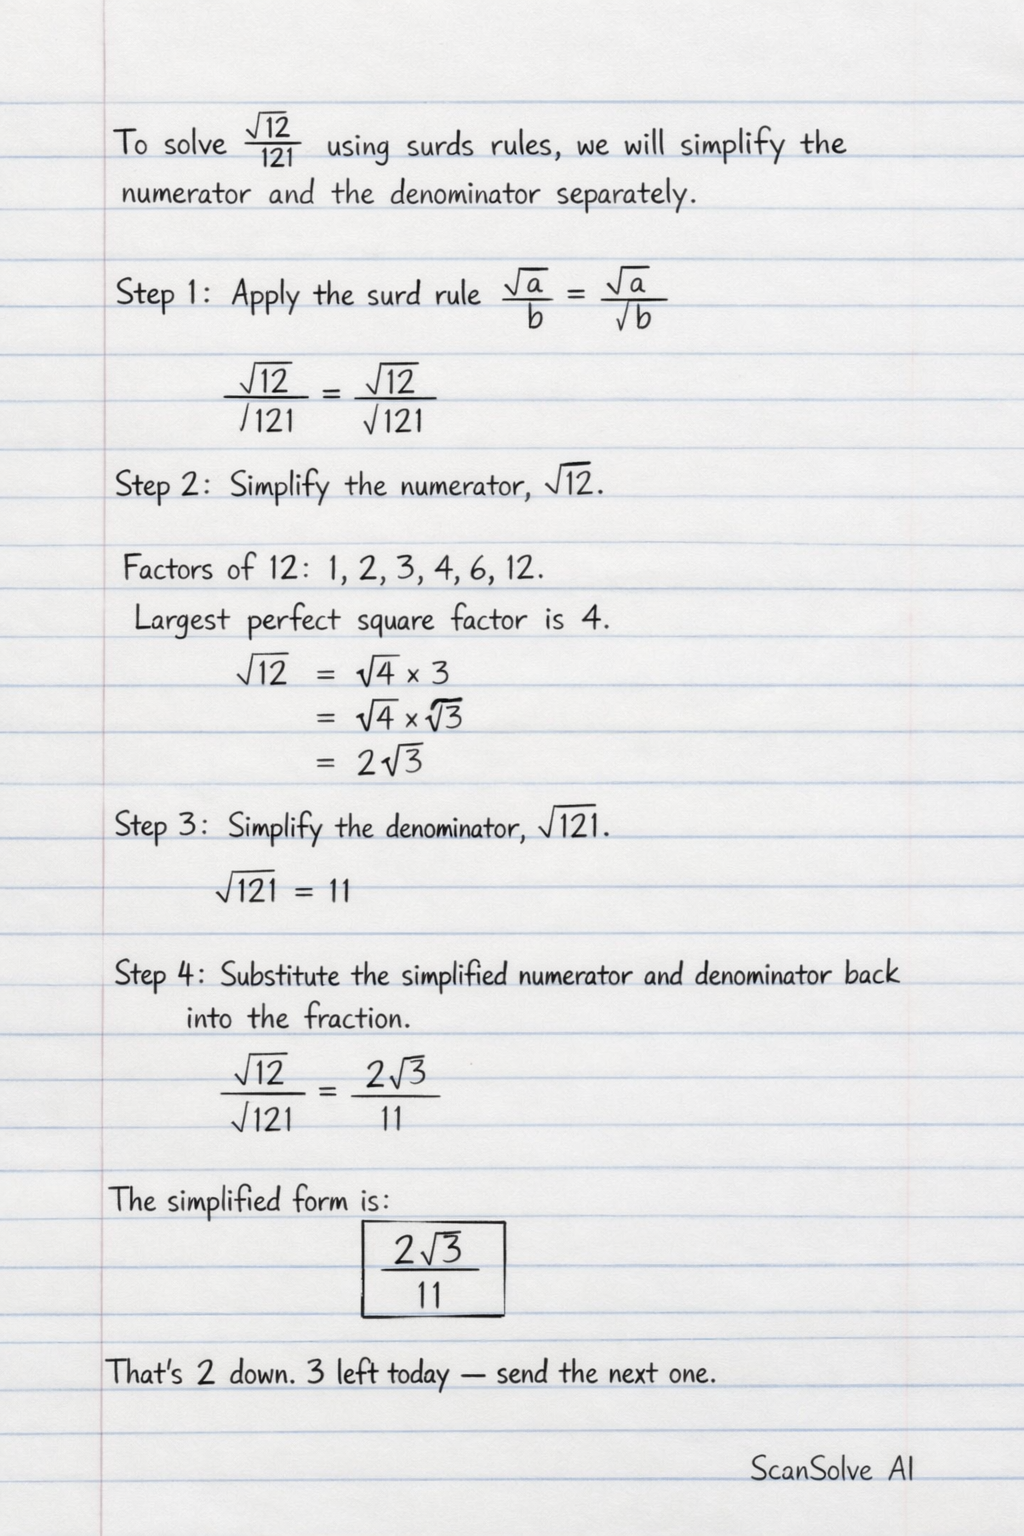 To solve √12/121 using surds rules, we will simplify the
numerator and the denominator separately.
Step 1: Apply the surd rule √a/b = √a/√b
√12/∕121 = √12/√121
Step 2: Simplify the numerator, √12.
Factors of 12: 1, 2, 3, 4, 6, 12.
Largest perfect square factor is 4.
√12 = √4 × 3
= √4 × √3
= 2√3
Step 3: Simplify the denominator, √121.
√121 = 11
Step 4: Substitute the simplified numerator and denominator back
into the fraction.
√12/√121 = 2√3/11
The simplified form is:
2√3/11
That's 2 down. 3 left today — send the next one.
ScanSolve AI